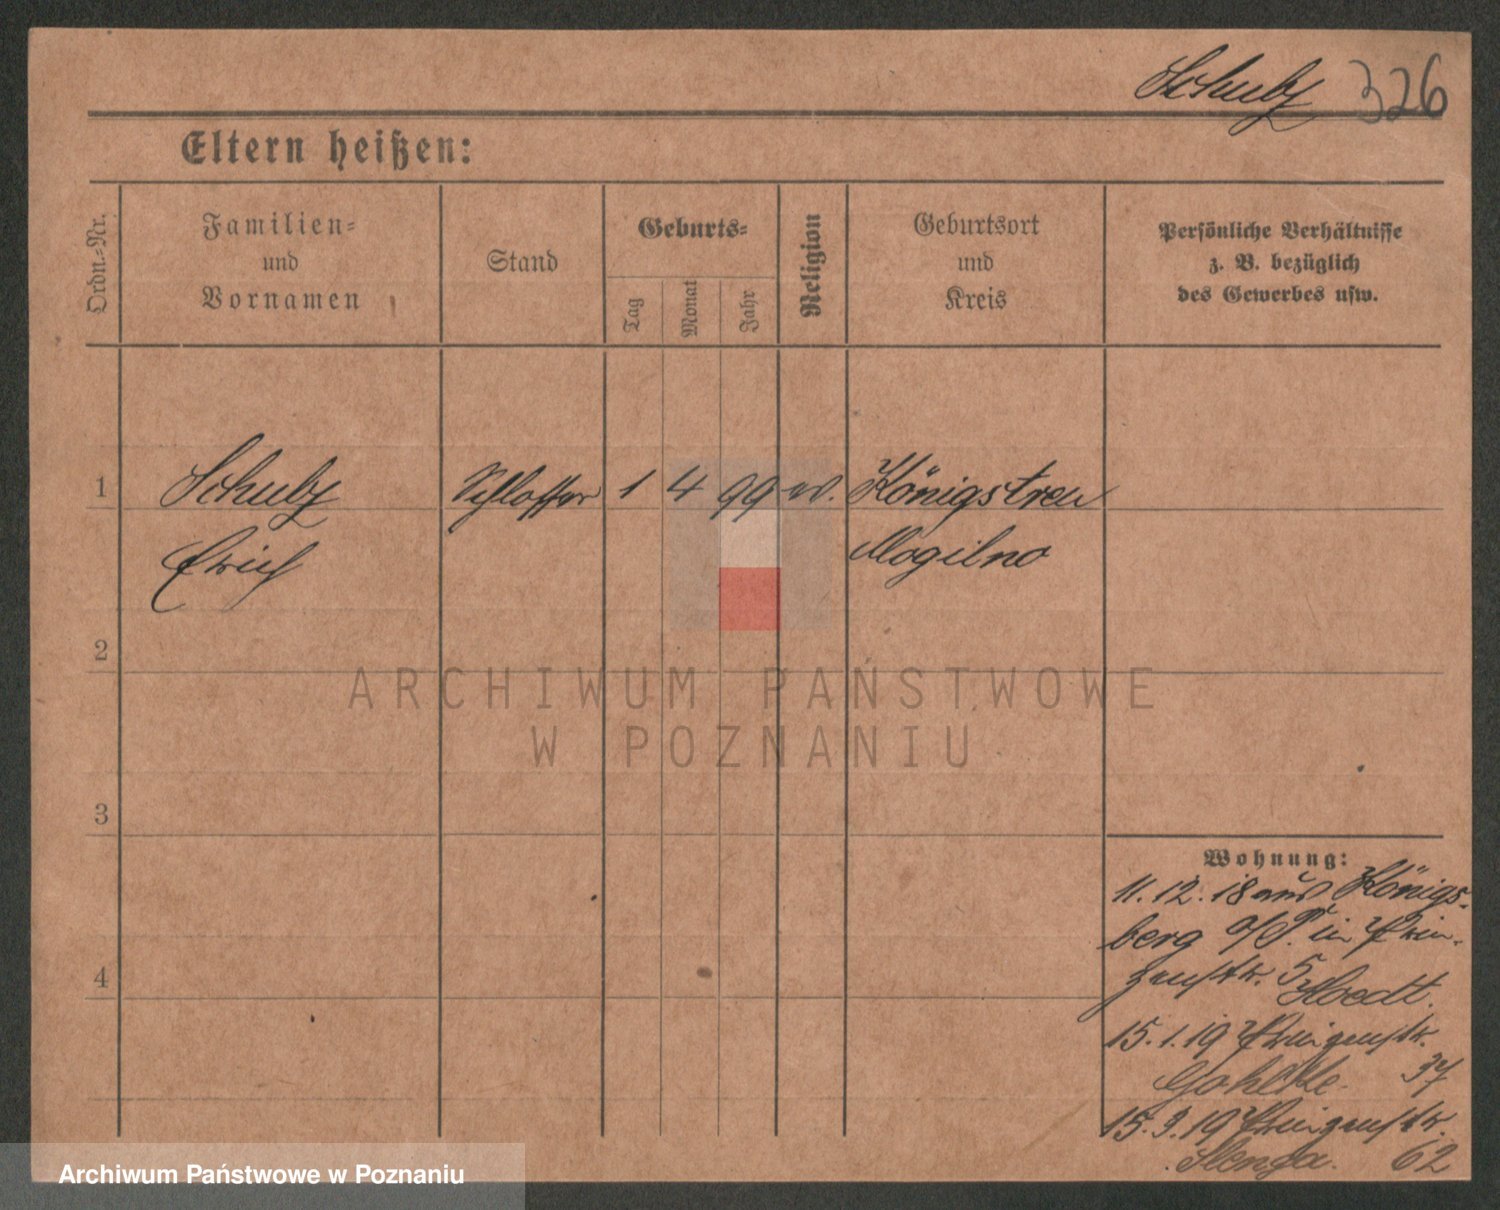 Schulz 326
Eltern heißen:
Ordn.-Nr.
Familien-
und
Vornamen
Stand
Geburts-
Tag
Monat
Jahr
Religion
Geburtsort
und
Kreis
Persönliche Verhältnisse
z. B. bezüglich
des Gewerbes usw.
1 Schulz Schlosser 1 4 99 ev. Königstreu
Erich Mogilno
2
3
4
Wohnung:
11.12.18 aus Königs-
berg o/P. in Prin-
zenstr. 5
15.1.19 Prinzenstr.
Gohlke. 37
15.3.19 Prinzenstr.
62
ARCHIWUM PAŃSTWOWE
W POZNANIU
Archiwum Państwowe w Poznaniu